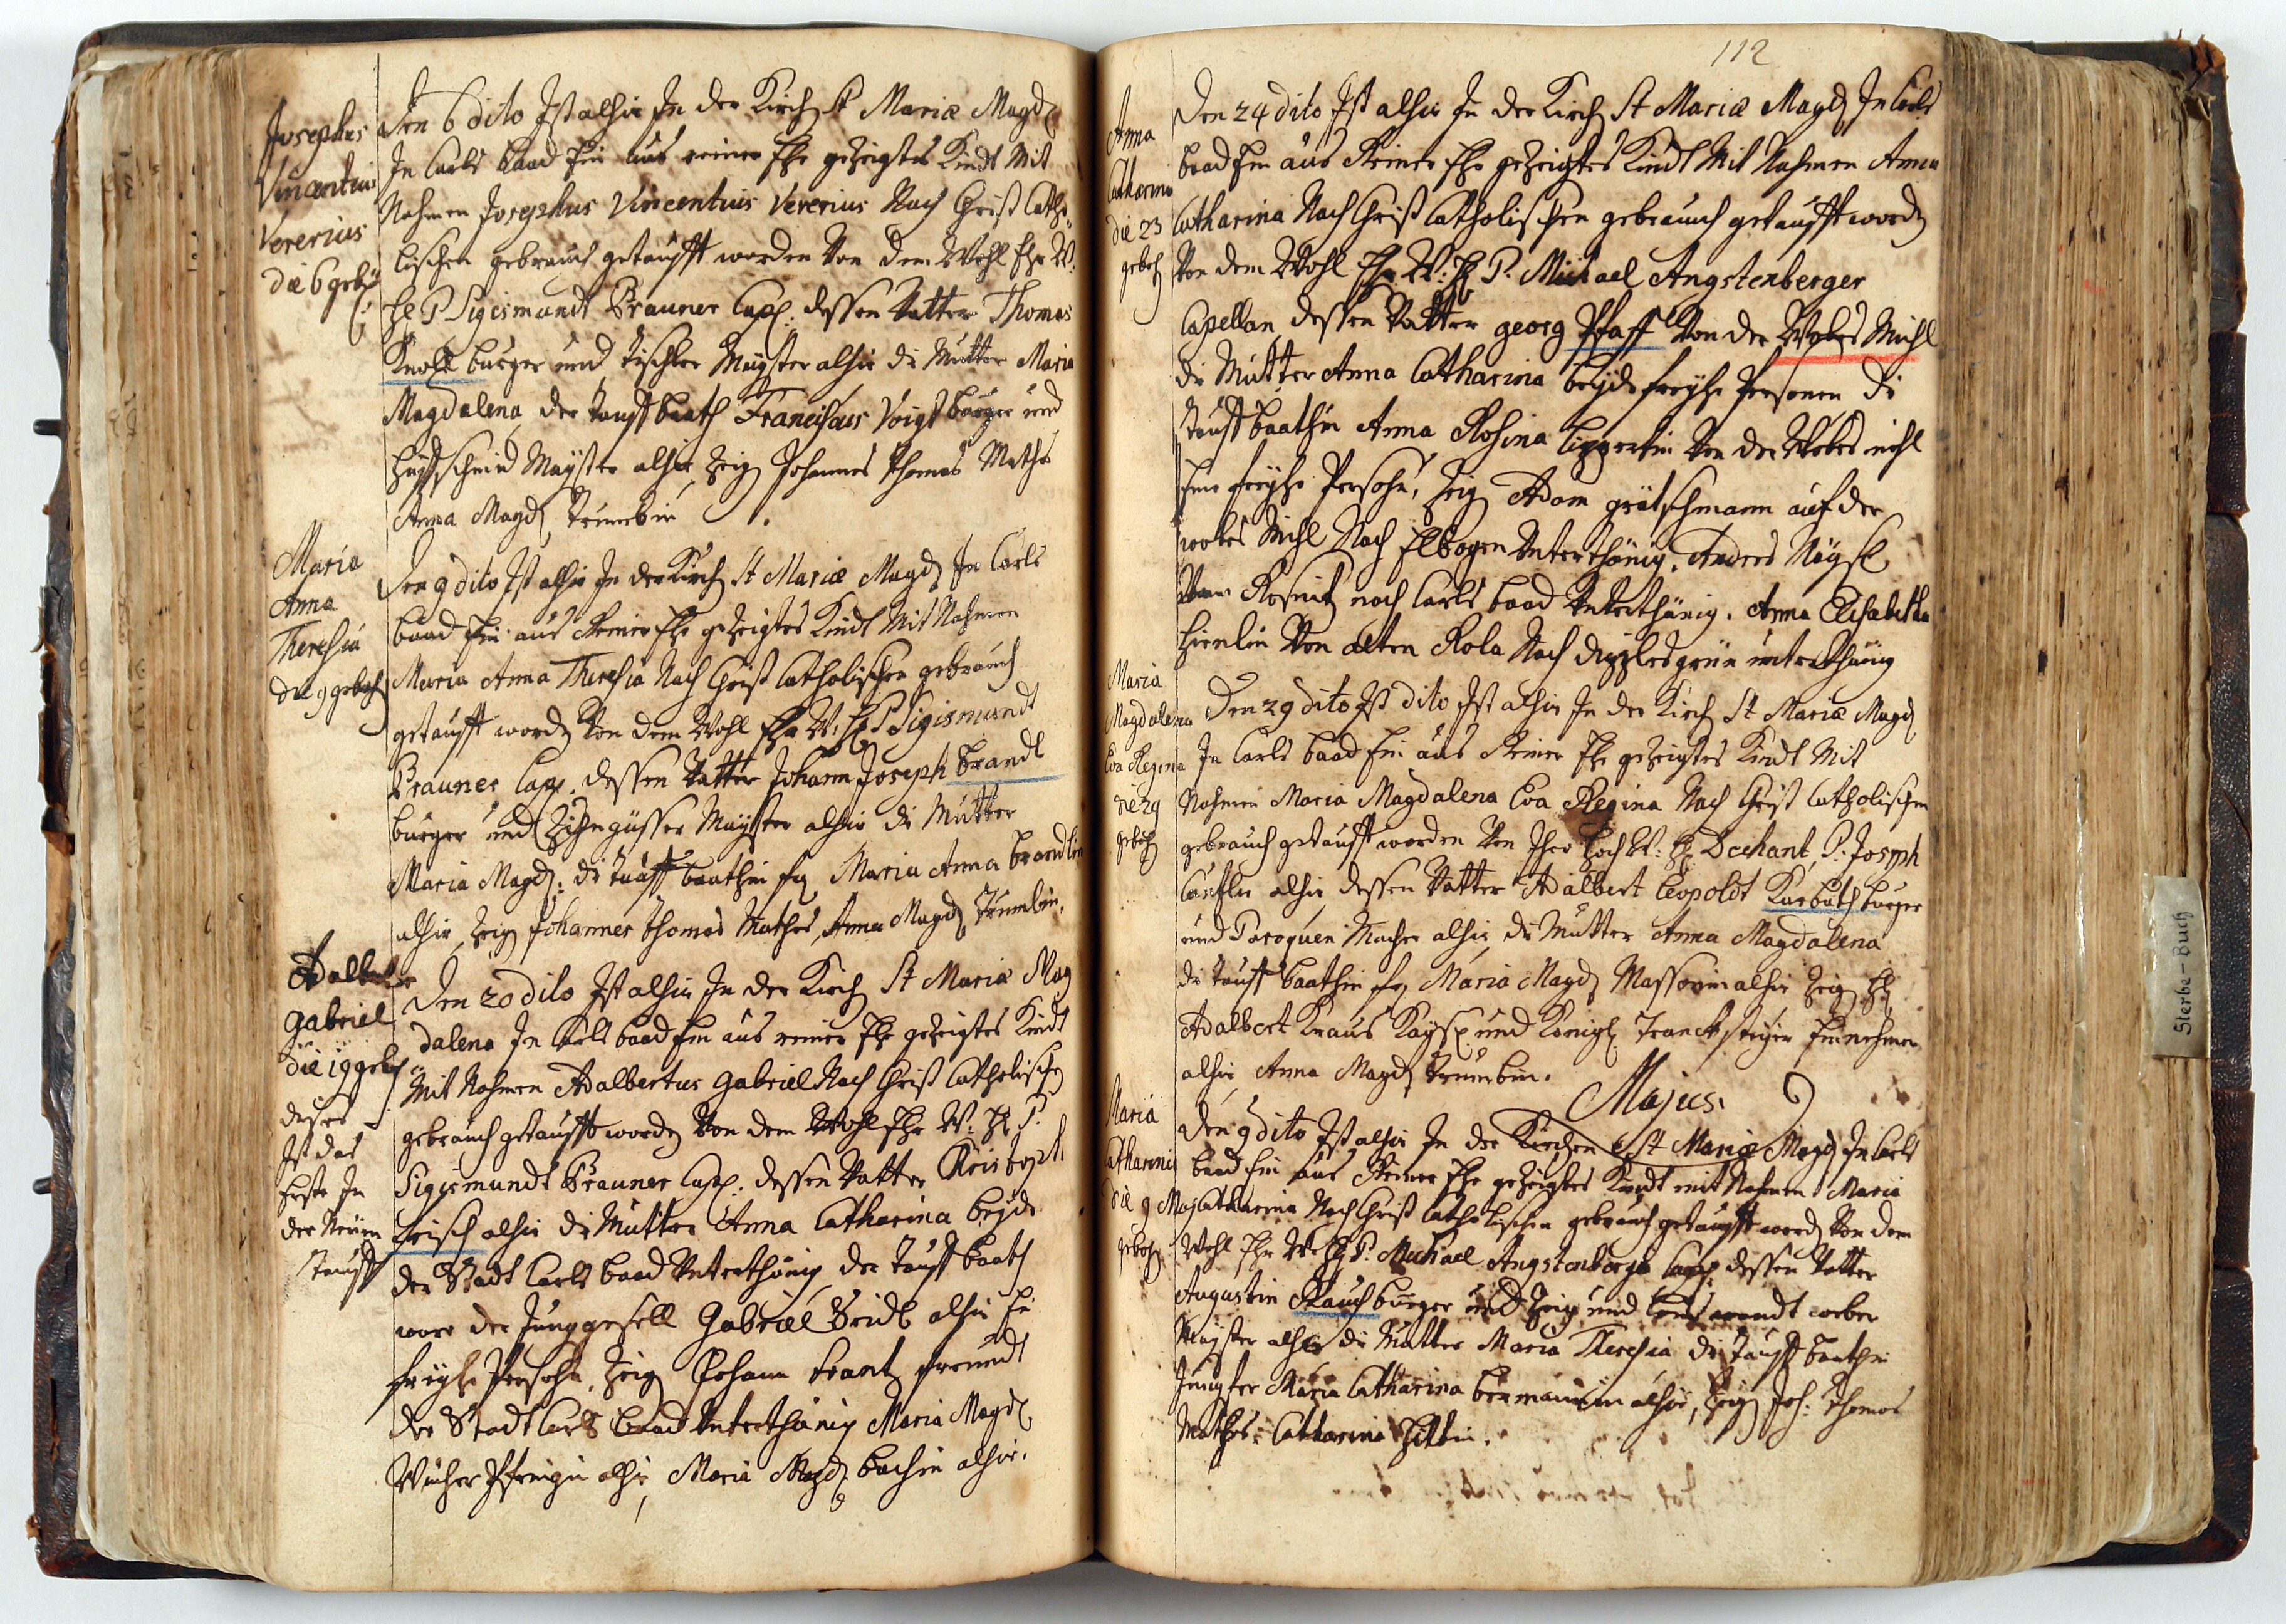 Josephus
Vincentius
Vererius
die 6 geb
Den 6 dito Ist alhir In der Kirch St Mariæ Magd
In Carls baad Ein aus reiner Ehe gezeigtes Kindt Mit
Nahmen Josephus Vincentius Vererius Nach Christ Catho
lischen gebrauch getaufft worden Von dem Wohl Ehr W:
H P Sigismundt Brauner Cap: dessen Vatter Thomas
Knoll burger und tischler Mayster alhir di Mutter Maria
Magdalena der tauff baath Franciscus Voigt burger und
Mayster alhir, Zeig Johannes Thomas Mathes
Anna Magd Trumbin
Maria
Anna
Theresia
die 9 geboh
Den 9 dito Ist alhir In der Kirch St Mariæ Magd In Carls
baad Ein aus Reiner Ehe gezeigtes Kindt Mit Nahmen
Maria Anna Theresia Nach Christ Catholischen gebrauch
getaufft word Von dem Wohl Ehr W: H P Sigismundt
Brauner Cap: dessen Vatter Johann Joseph brandl
burger und Zihngüsser Mayster alhir di Mutter
Maria Magd: di tauff baathin Maria Anna brandlin
alhir, Zeig Johannes Thomas Mathes, Anna Magd Trumbin.
Adalbertus
Gabriel
die 19 geboh
dises
Ist das
Erste In
der Neuen
Tauff
Den 20 dito Ist alhir In der Kirch St Mariæ Mag
dalena In Carls baad Ein aus reiner Ehe gezeigtes Kindt
Mit Nahmen Adalbertus Gabriel Nach Christ Catholischen
gebrauch getaufft word Von dem Wohl Ehr W: H P.
Sigismundt Brauner Cap: dessen Vatter Kristoph
frisch alhir di Mutter Anna Catharina beyde
der Stadt Carls baad Unterthänig der tauff baath
ware der Junggesell Gabriel Seidl alhir Ein
freyhe Persohn, Zeig Johann
der Stadt Carls baad Unterthänig Maria Magd
alhir, Maria Magd bachin alhir.
112
Anna
Catharina
die 23
geboh
Den 24 dito Ist alhir In der Kirch St Mariæ Magd In Carls
baad Ein aus Reiner Ehe gezeigtes Kindt Mit Nahmen Anna
Catharina Nach Christ Catholischen gebrauch getaufft word
Von dem Wohl Ehr W: H P. Michael Angstenberger
Capellan dessen Vatter georg Pfaff Von der Wobes Mihl
di Mutter Anna Catharina beyde freyhe Personen di
Tauff baathin Anna Rosina Lippertin Von der Wobes mihl
Eine freyhe Persohn, Zeig Adam grätschmann auf der
wobes Mihl Nach Elbogen Unterthänig, Andres
Von Rosnitz nach Carls baad Unterthänig. Anna Elisabetha
Von alten Rola Nach unterthänig
Maria
Magdalena
Eva Regina
die 29
geboh
Den 29 dito Ist dito Ist alhir In der Kirch St Mariæ Magd
In Carls baad Ein aus Reiner Ehe gezeigtes Kindt Mit
Nahmen Maria Magdalena Eva Regina Nach Christ Catholischen
gebrauch getaufft worden Von Ihro Hoch W: H Dechant, P: Joseph
alhir dessen Vatter Adalbert Leopoldt Karbath burger
und Paroquen Macher alhir di Mutter Anna Magdalena
di tauff baathin Maria Magd Massorin alhir Zeig H
Adalbert Kraus Kays: und Königl Tranck steyer Einnehmer
alhir Anna Magd Trumbin.
Majus.
Maria
Catharina
die 9 Maj
geboh
Den 9 dito Ist alhir In der Kirchen St Mariæ Magd In Carls
baad Ein aus Reiner Ehe gezeigtes Kindt mit Nahmen Maria
Catharina Nach Christ Catholischen gebrauch getaufft word Von dem
Wohl Ehr W: H P: Michael Angstenberger Cap: dessen Vatter
Augustin Rauch burger und Zeig und weber
Mayster alhir di Mutter Maria Theresia di tauff baathin
Jungfer Maria Catharina bermannin alhir, Zeig Joh: Thomas
Mathes, Catharina
Sterbe-Buch